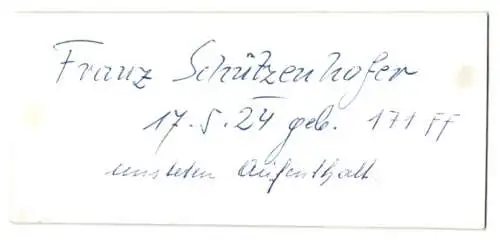 Franz Schützenhofer
17.5.24 geb. 171 FF
unsteten Aufenthalt